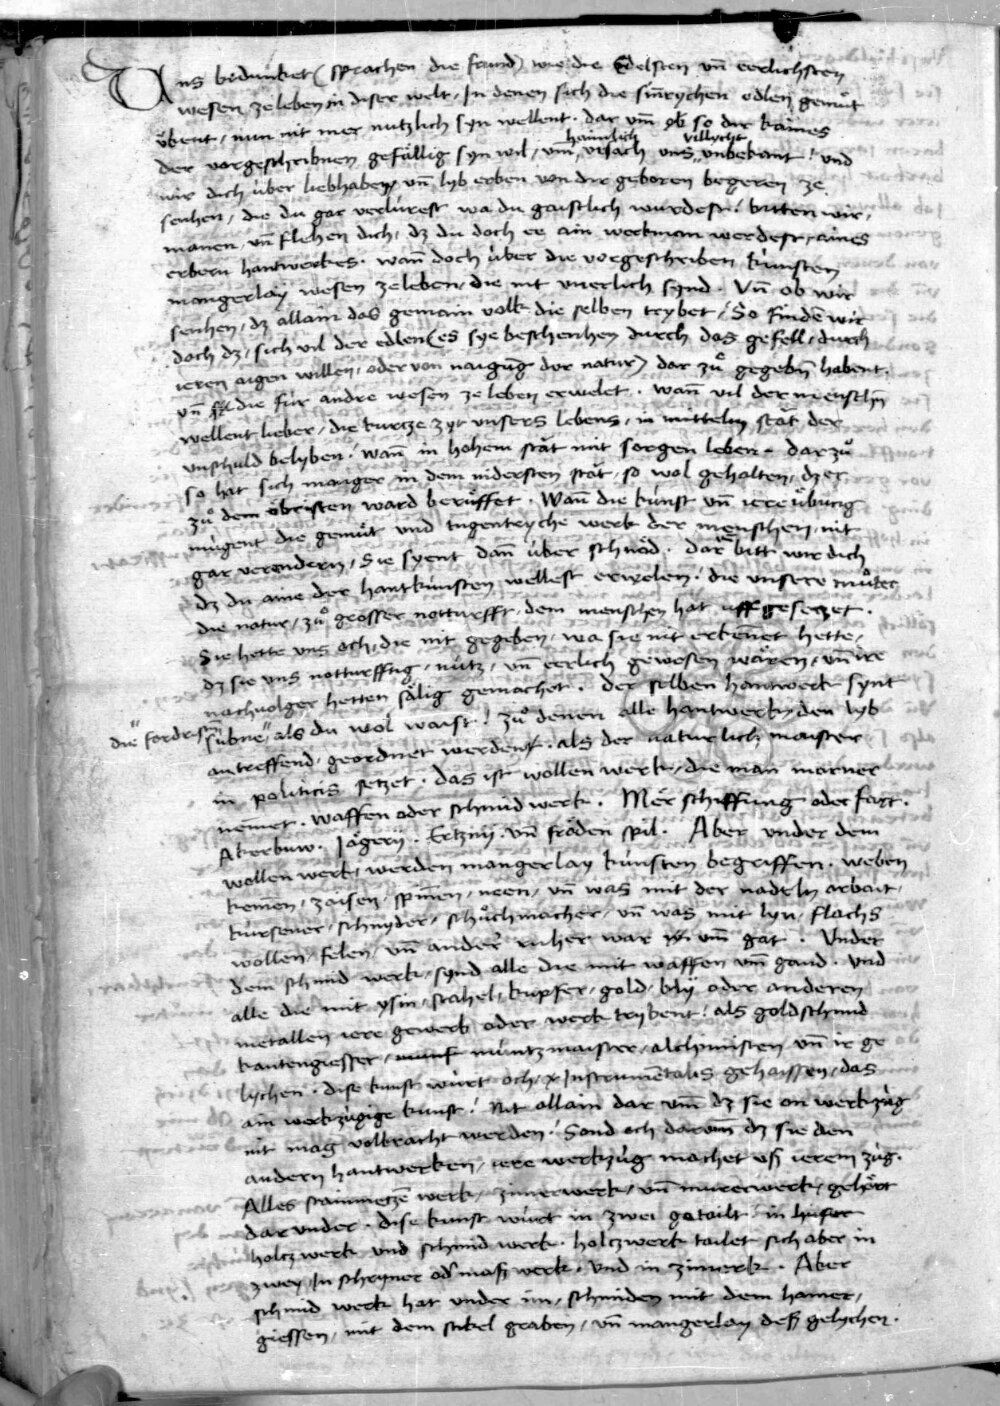 Uns bedunket (sprachen die frund) wie die Edelsten vñ eerlichsten
wesen zeleben in diser welt, In denen sich die sinrychen edlen gemuͤt
uͤbent, nun nit mer nutzlich syn wellent. dar vm̄ ob so dir kaines
der vorgeschribnen gefaͤllig syn wil, vm̄ haimlich vrsach vns villycht vnbekant! vnd
wir dich uͤber liebhaben, vñ lyb erben von dir geboren begeren ze
senhen, die du gar verlurest wa du gaistlich wurdest! bitten wir,
manen vñ flehen dich, dz du doch ee ain werkman werdest, aines
erbern hantwerkes. wañ doch uͤber die vorgeschriben kuͤnsten
mangerlay wesen zeleben, die nit vnerlich synd. Vñ ob wir
senhen, dz allain das gemain volk die selben trybet, So finden wir
doch dz, sich vil der edlen (es sye beschenhen durch das gefell, durch
ieren aigen willen, oder von naigung der natur) dar zuͦ gegebñ habent.
vñ die fuͤr andre wesen ze leben erwelet. wañ vil der menschñ
wellent lieber, die kurtze zyt vnsers lebens, in mitteln staͤt der
vnschuld belyben, wañ in hohem staͤt mit sorgen leben. darzuͦ
so hat sich manger in dem nidersten staͤt, so wol gehalten, dz er
zuͦ dem oͤbristen ward beruͤffet. Wañ die kunst vñ iere uͤbung
muͤgent die gemuͤt vnd tugentryche werk der menschen, nit
gar verendern, Sie syent dañ uͤber schnoͤd. dar vm̄ bitt wir dich
dz du aine der hantkuͤnsten wellest erwelen, die vnsere muͦter
die natur, zuͦ grosser notturfft, dem menschen hat uff gesetzet.
Sie hette vns och, die nit gegeben, wa sie nit erkeñet hette,
dz sie vns notturfftig, nuͤtz, vñ eerlich gewesen waͤren, vñ ire
nachuolger hetten saͤlig gemachet. Der selben hantwerk synt
die fordristñ sibne, als du wol waist! zuͦ denen alle hantwerk, den lyb
antreffend, geordnet werdent. als der natuͤrlich maister
in politicis setzet. das ist wollen werk, die man marner
nemet. Waffen oder schmid werk. Mer schiffung oder fart.
Akerbuw. Jaͤgerij. Ertznij. vñ froͤden spil. Aber vnder dem
wollen werk, werden mangerlay kuͤnsten begriffen. weben
kemen, zaisen, spinnen, neen, vñ was mit der nadeln arbait,
kursener, schnyder, schuͦchmacher, vñ was mit lyn, flachs
wollen, felen, vñ ander ruher war vm̄ gat. Vnder
dem schmid werk, synd alle die mit waffen vm̄ gand. vnd
alle die mit ysin, stahel, kupfer, gold, bly oder anderen
metallen iere gewerb oder werk trybent, als goldschmid
kantengiesser, muͤntzmaister, alchimisten vñ ir ge
lychen. dise kunst wuͤrt och, Instrumentalis gehaissen, das
ain werkzuͤgige kunst! Nit allain dar vm̄ dz sie on werkzuͤg
nit mag volbracht werden! Sond och darum̄ dz sie den
andern hantwerken, iere werkzuͤg machet uß ierem zuͤg.
Alles stainmetzen werk, zimerwerk, vñ murerwerk, gehoͤrt
dar vnder. dise kunst wuͤrt in zwei getailt, in
holtzwerk vnd schmid werk. holtzwerk tailet sich aber in
zwey, In schryner oder maß werk, vnd in zimerk. Aber
schmid werk hat vnder im, schmiden mit dem hamer,
giessen, mit dem stikel graben, vñ mangerlay deß gelychen.